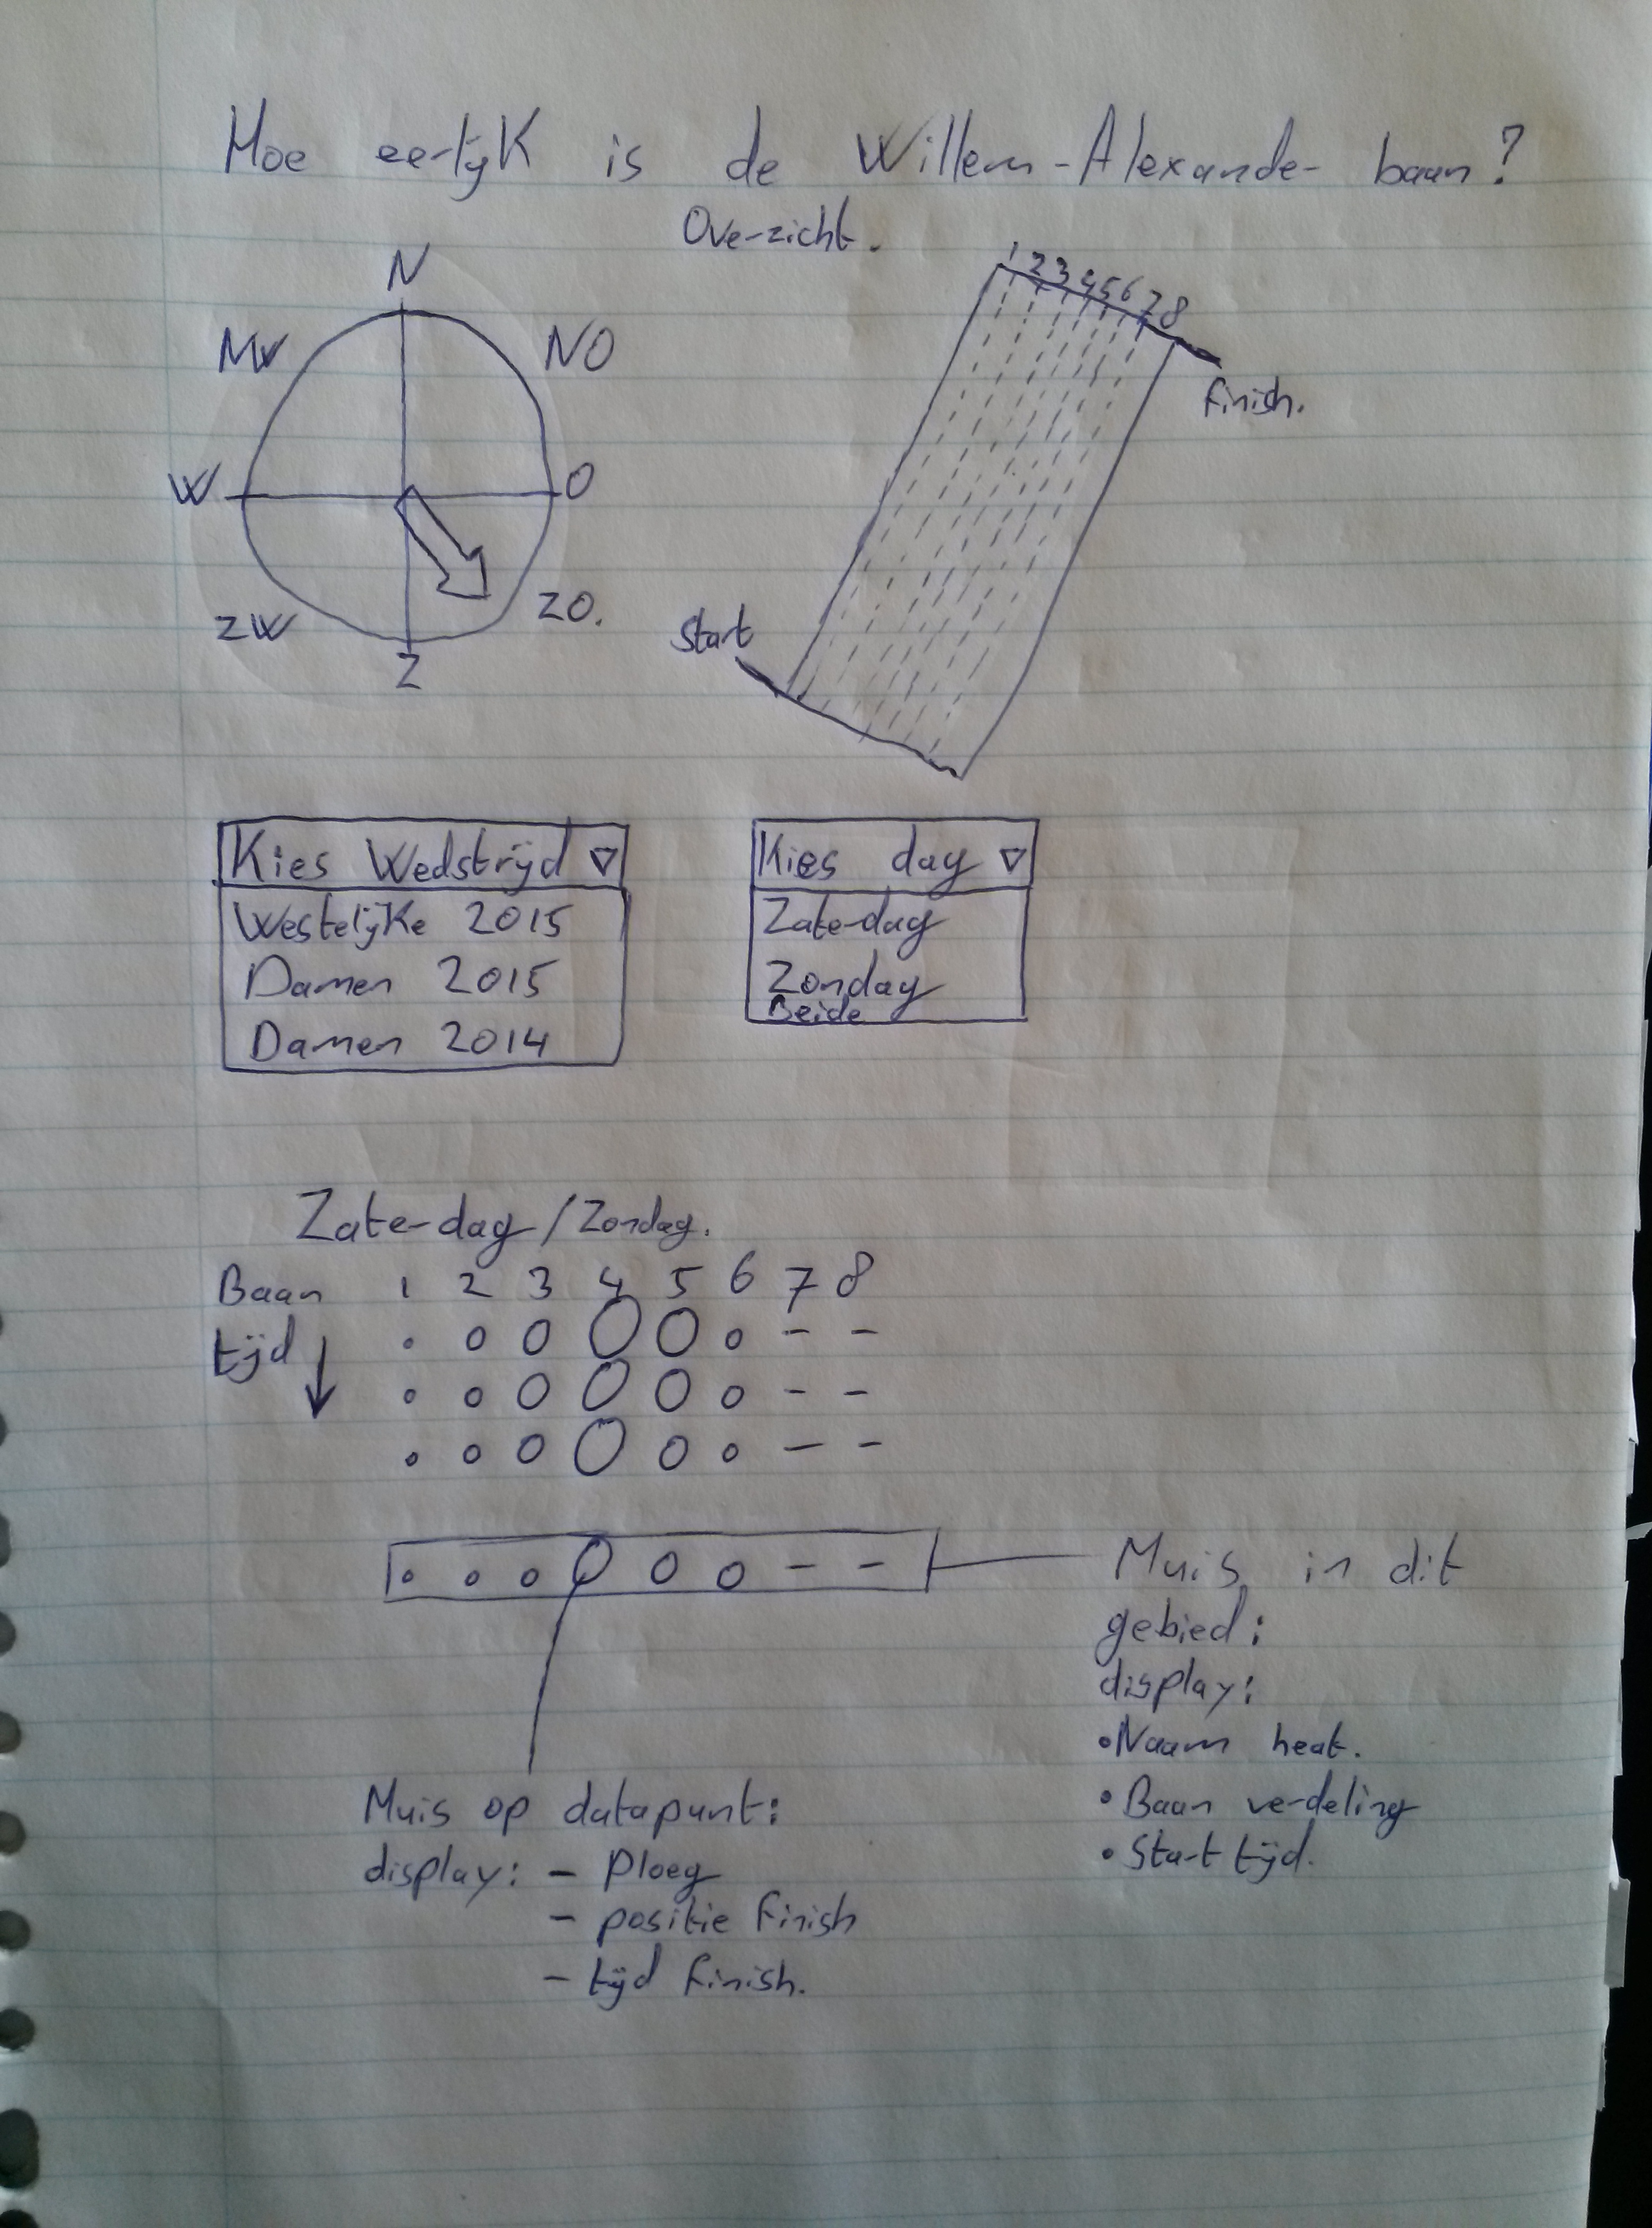 Hoe eerlijk is de Willem-Alexander baan?
Overzicht.
N
NW NO
W O
ZW ZO.
Z
1 2 3 4 5 6 7 8
finish.
Start
Kies Wedstrijd
Westelijke 2015
Damen 2015
Damen 2014
Kies dag
Zaterdag
Zondag
Beide
Zaterdag/Zondag.
Baan 1 2 3 4 5 6 7 8
tijd
Muis in dit
gebied:
display:
• Naam heat.
• Baan verdeling
• Start tijd.
Muis op datapunt:
display: - Ploeg
- positie finish
- tijd finish.